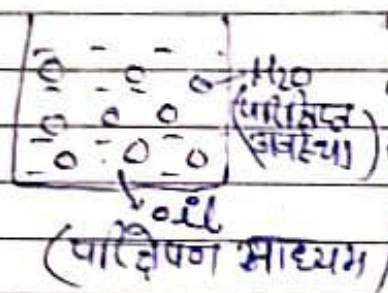 H2O
(परिक्षिप्त
अवस्था)
oil
(परिक्षेपण माध्यम)